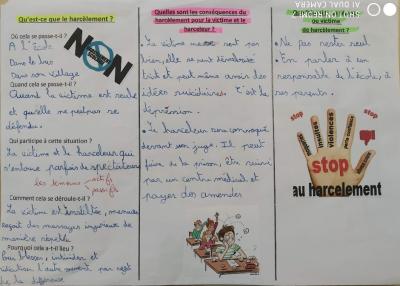 Qu'est-ce que le harcèlement ?
Où cela se passe-t-il ?
A l'École
Dans le bus
Dans son village
Quand cela se passe-t-il ?
Quand la victime est seule
et qu'elle ne peut pas se
défendre.
Qui participe à cette situation ?
La victime et le harceleur qui
s'entoure parfois de spectateurs
les témoins actifs
passifs
Comment cela se déroule-t-il ?
La victime est
reçoit des messages injurieux de
manière répétée
Pourquoi cela a-t-il lieu ?
Pour blesser, intimider et
l'autre par rejet
de la différence
NON
Quelles sont les conséquences du
harcèlement pour la victime et le
harceleur ?
La victime ne sent pas
bien, elle se peut
triste et peut même avoir des
idées suicidaires. C'est la
dépression.
Le harceleur sera convoqué
devant un juge. Il peut
faire de la prison, être suivi
par un centre médical et
payer des amendes
ou victime
de harcèlement ?
Ne pas rester seul
En parler à un
responsable de l'école, à
ses parents.
insultes
violences
stop
au harcèlement